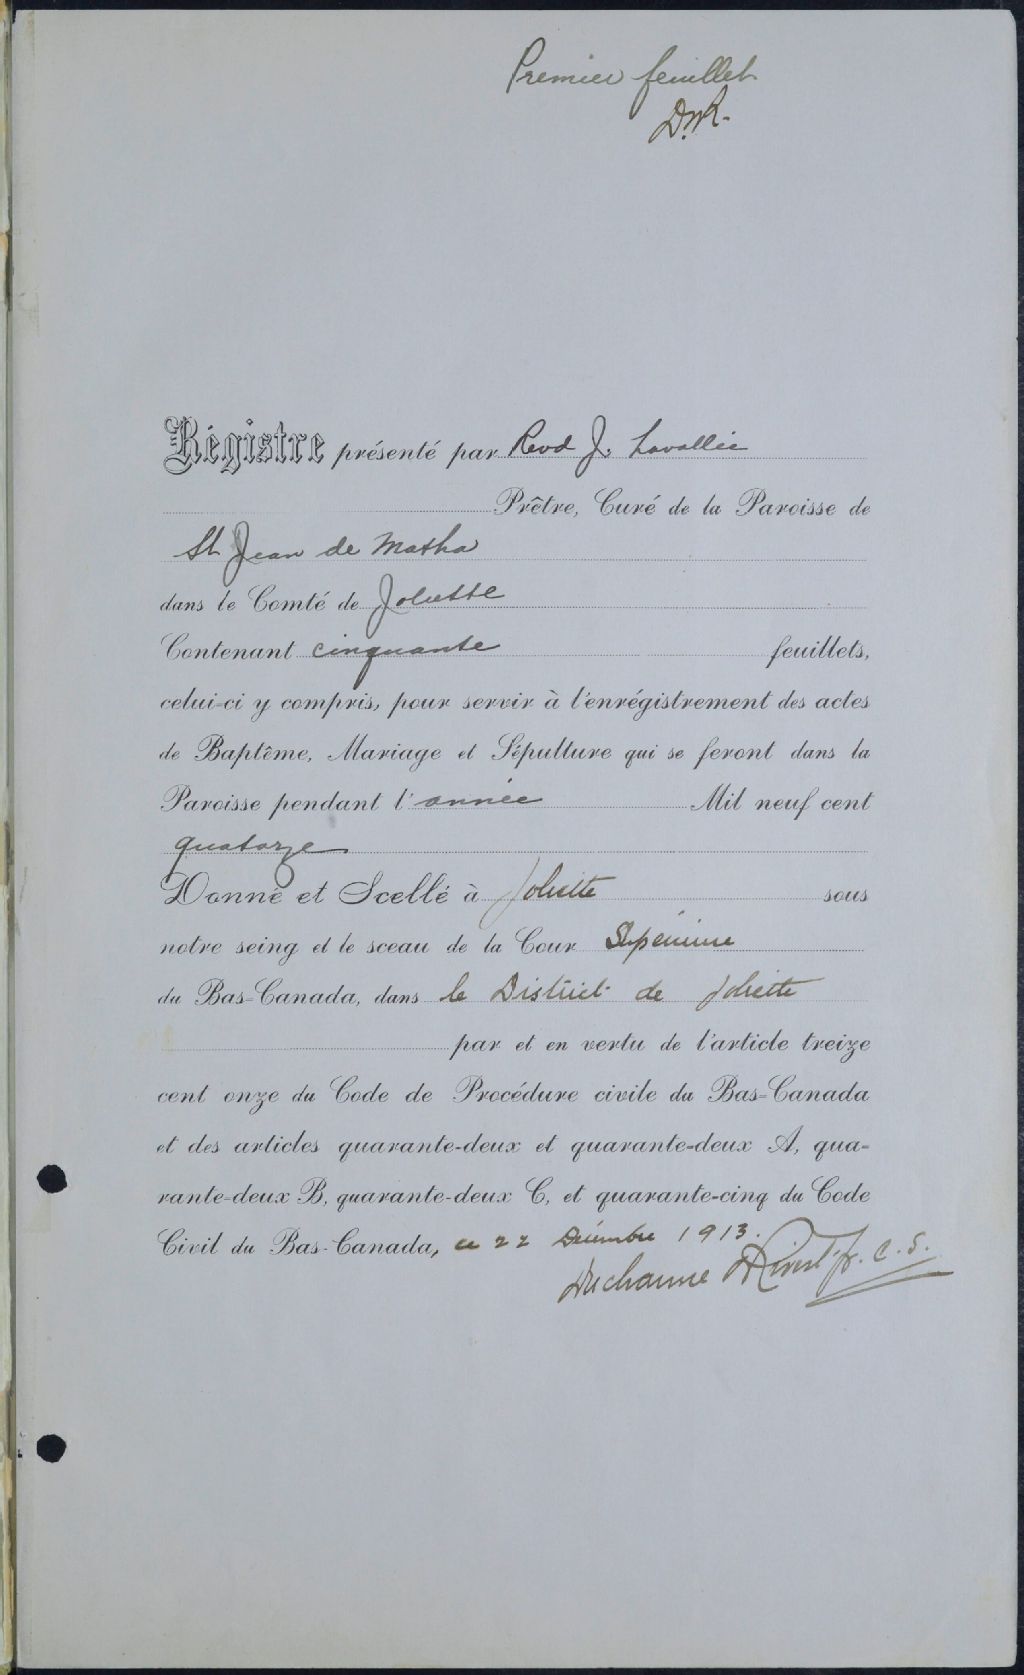 Premier feuillet
D. & R.
Régistre présenté par Revd J. Lavallée
Prêtre, Curé de la Paroisse de
St Jean de Matha
dans le Comté de Joliette
Contenant cinquante feuillets,
celui-ci y compris, pour servir à l'enrégistrement des actes
de Baptême, Mariage et Sépulture qui se feront dans la
Paroisse pendant l'année Mil neuf cent
quatorze
Donné et Scellé à Joliette sous
notre seing et le sceau de la Cour Supérieure
du Bas-Canada, dans le District de Joliette
par et en vertu de l'article treize
cent onze du Code de Procédure civile du Bas-Canada
et des articles quarante-deux et quarante-deux A, qua-
rante-deux B, quarante-deux C, et quarante-cinq du Code
Civil du Bas-Canada, ce 22 Décembre 1913.
Ducharme & Rivest p. C. S.